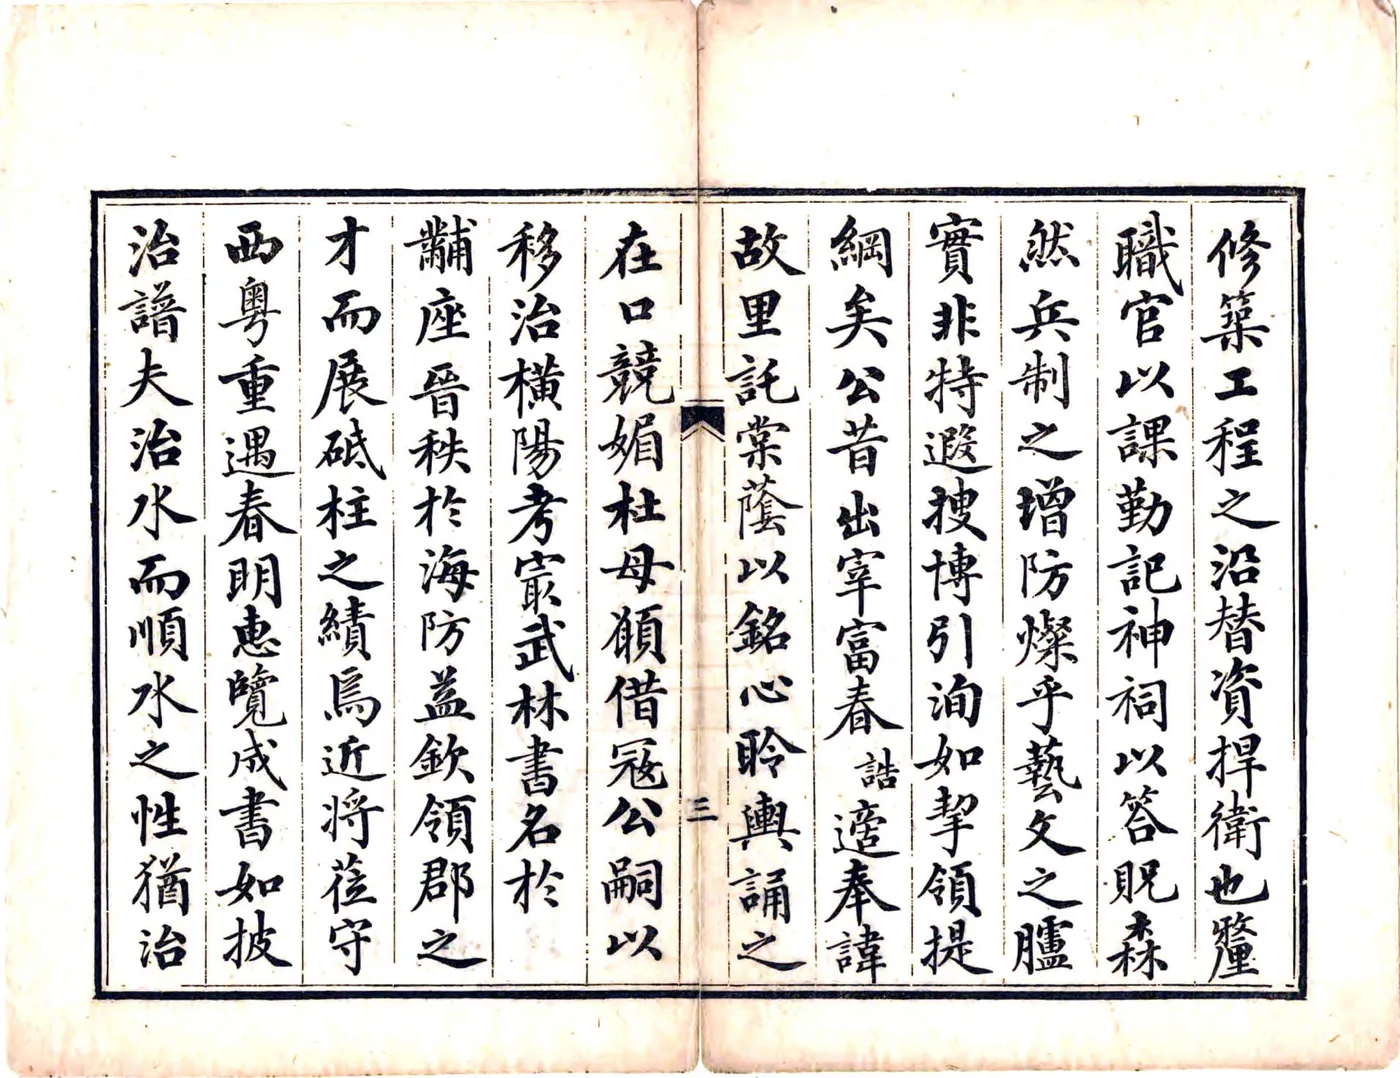 修築工程之沿替資捍衛也釐
職官以課勤記神祠以答貺森
然兵制之增防燦乎藝文之臚
實非特遐搜博引洵如挈領提
綱矣公昔出宰富春誥適奉諱
故里託棠蔭以銘心聆輿誦之
三
在口競媚杜母願借冦公嗣以
移治橫陽考㝡武林書名於
黼座晉秩於海防益欽領郡之
才而展砥柱之績焉近將莅守
西粵重遇春明惠覽成書如披
治譜夫治水而順水之性猶治